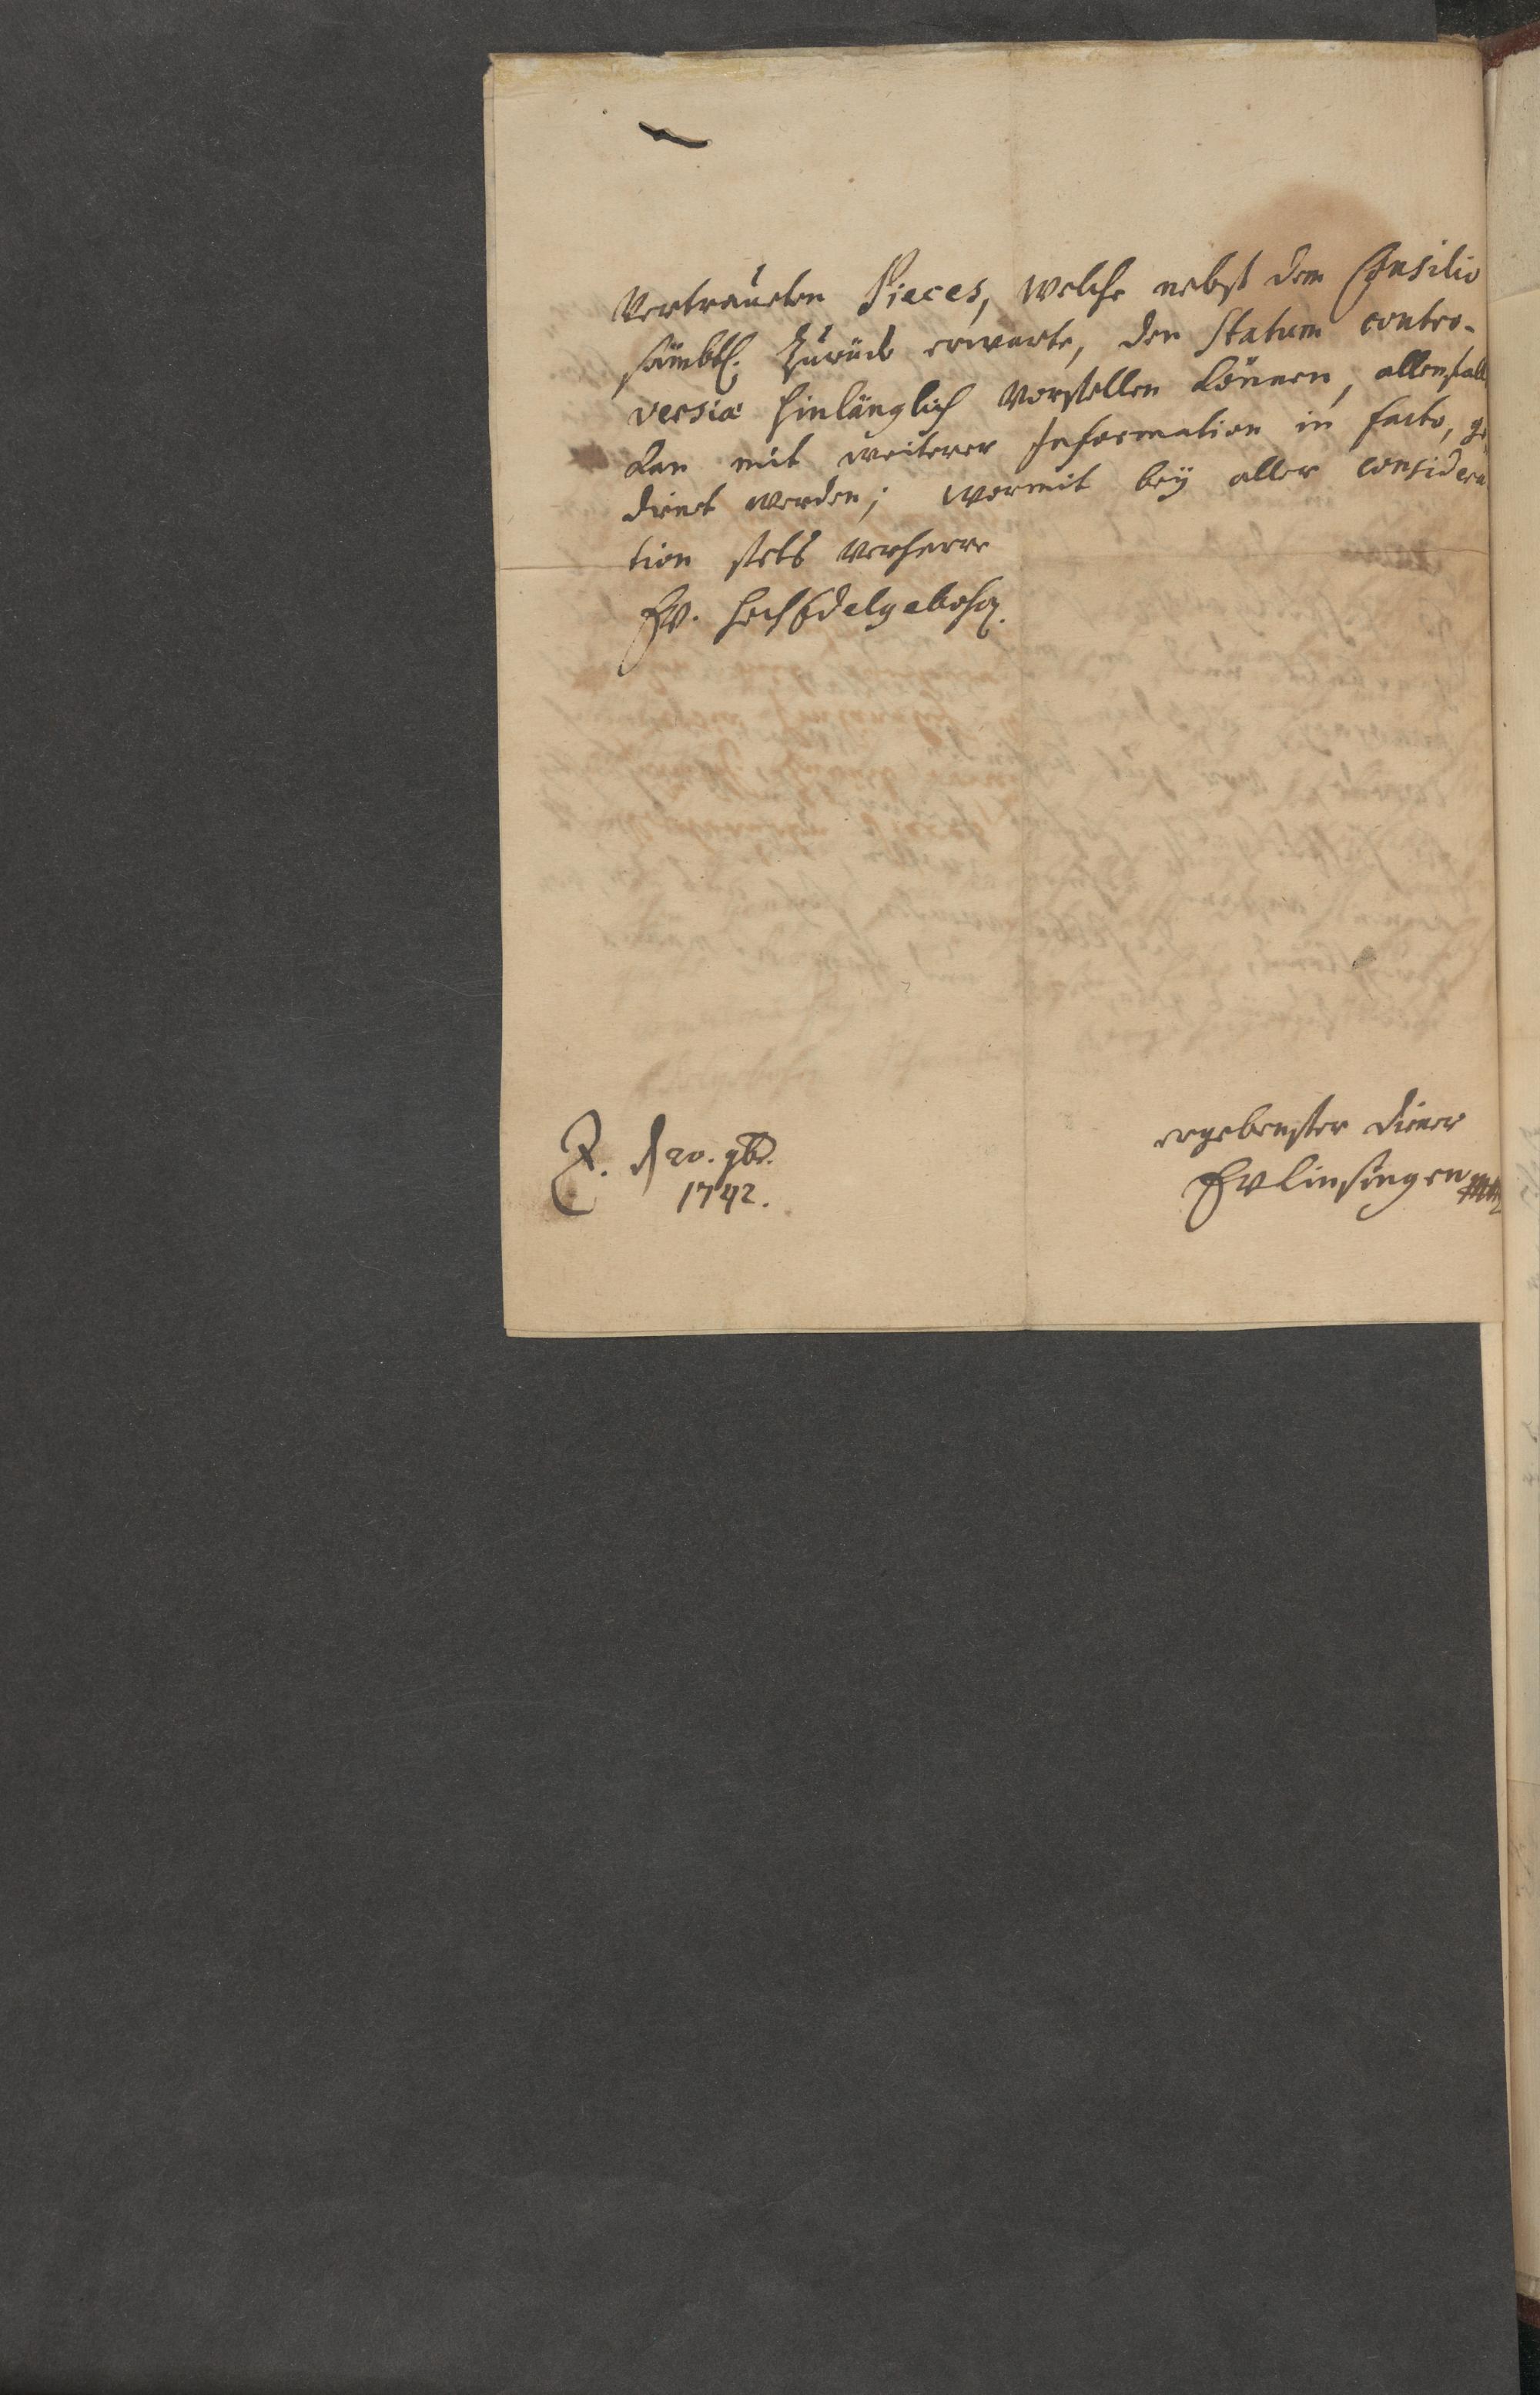 vertraueten Pieces, welche nebst dem Consilio
sämbtl. Zurück erwarte, den Statum contro-
versiæ hinlänglich vorstellen können, allenfalls
kan mit weiterer Information in facto, ge
dienet werden; wormit beÿ aller considera
tion stets verharre
Ew. HochEdelgebohr.
ergebenster Diener
EvLinsingen
Z. d 20. 9br.
1742.